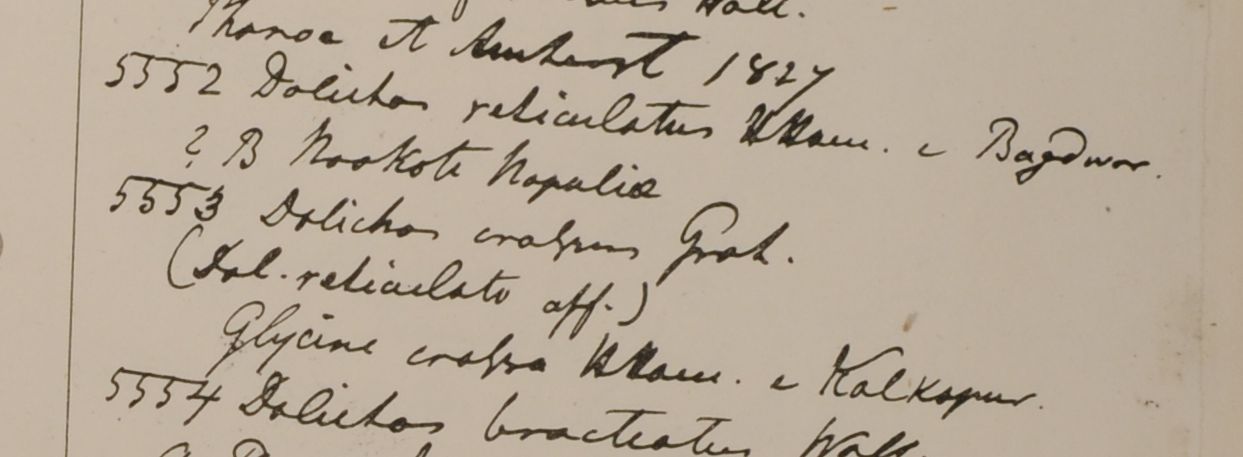 Wall.
Phanoe et Amherst 1827
5552 Dolichos reticulatus HHam. e Bagdwar.
? B Noakote Napaliæ
5553 Dolichos crassus Grah.
(Dol. reticulato aff.)
Glycine crassa HHam. e Kalkapur.
5554 Dolichos bracteatus Wall